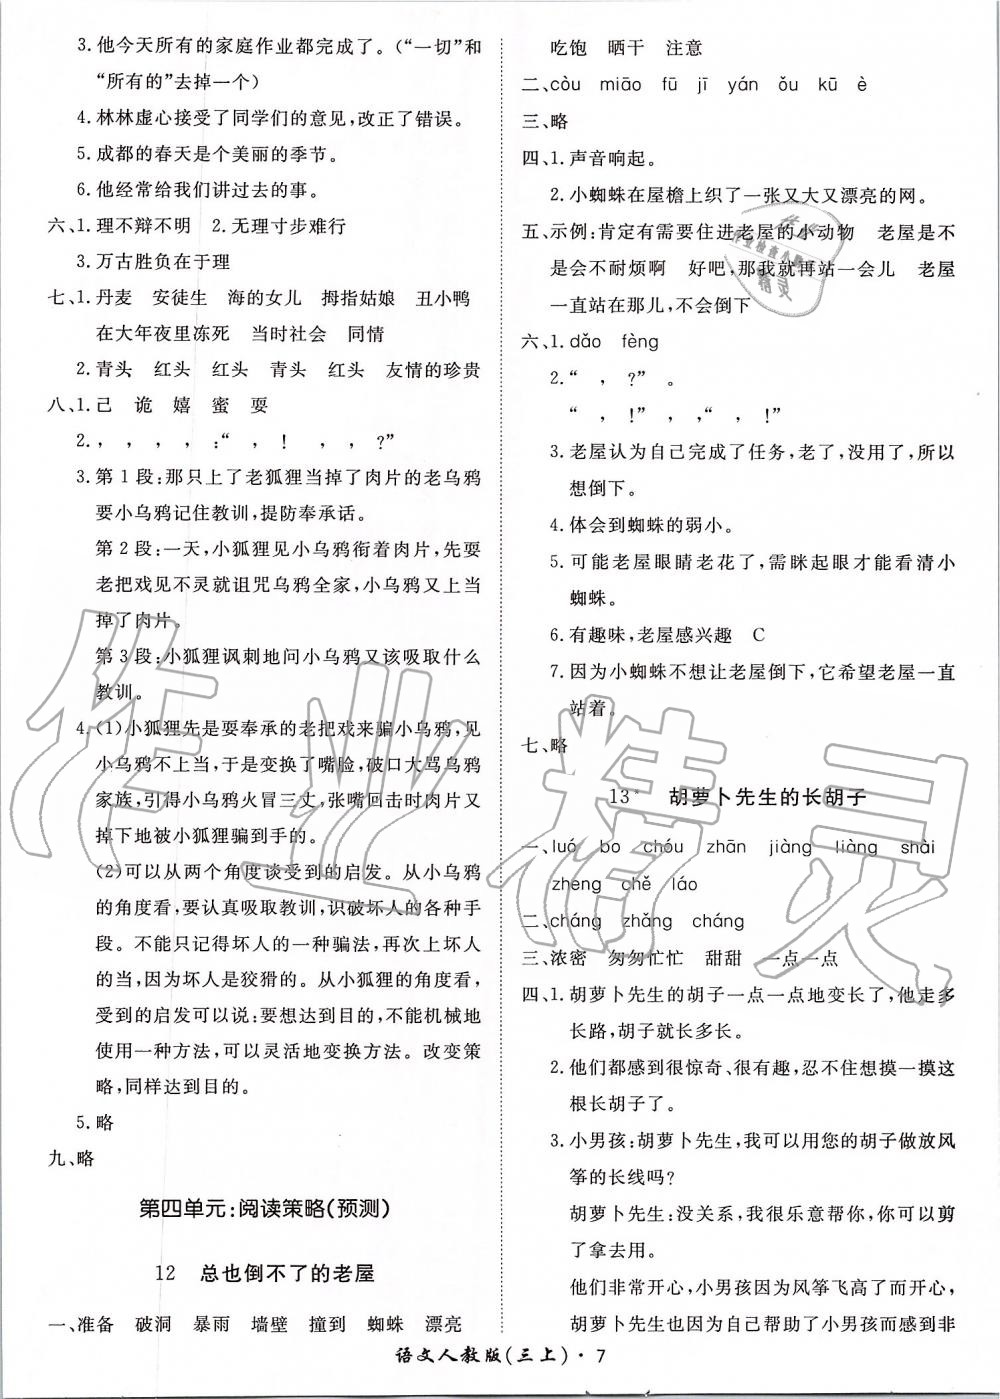 3. 他今天所有的家庭作业都完成了。(“一切”和
“所有的”去掉一个)
4. 林林虚心接受了同学们的意见,改正了错误。
5. 成都的春天是个美丽的季节。
6. 他经常给我们讲过去的事。
六、1. 理不辩不明　2. 无理寸步难行
3. 万古胜负在于理
七、1. 丹麦　安徒生　海的女儿　拇指姑娘　丑小鸭
在大年夜里冻死　当时社会　同情
2. 青头　红头　红头　青头　红头　友情的珍贵
八、1. 己　诡　嬉　蜜　耍
2. ，　，　，　，　：“　，　！　，　，　？”
3. 第 1 段:那只上了老狐狸当掉了肉片的老乌鸦
要小乌鸦记住教训,提防奉承话。
第 2 段:一天,小狐狸见小乌鸦衔着肉片,先耍
老把戏见不灵就诅咒乌鸦全家,小乌鸦又上当
掉了肉片。
第 3 段:小狐狸讽刺地问小乌鸦又该吸取什么
教训。
4. (1)小狐狸先是耍奉承的老把戏来骗小乌鸦,见
小乌鸦不上当,于是变换了嘴脸,破口大骂乌鸦
家族,引得小乌鸦火冒三丈,张嘴回击时肉片又
掉下地被小狐狸骗到手的。
(2)可以从两个角度谈受到的启发。从小乌鸦
的角度看,要认真吸取教训,识破坏人的各种手
段。不能只记得坏人的一种骗法,再次上坏人
的当,因为坏人是狡猾的。从小狐狸的角度看,
受到的启发可以说:要想达到目的,不能机械地
使用一种方法,可以灵活地变换方法。改变策
略,同样达到目的。
5. 略
九、略
第四单元:阅读策略(预测)
12　总也倒不了的老屋
一、准备　破洞　暴雨　墙壁　撞到　蜘蛛　漂亮
吃饱　晒干　注意
二、còu　miāo　fū　jī　yán　ǒu　kū　è
三、略
四、1. 声音响起。
2. 小蜘蛛在屋檐上织了一张又大又漂亮的网。
五、示例:肯定有需要住进老屋的小动物　老屋是不
是会不耐烦啊　好吧,那我就再站一会儿　老屋
一直站在那儿,不会倒下
六、1. dǎo　fèng
2. “　，　？”　。
“　，　！”　，　，“　，　！”
3. 老屋认为自己完成了任务,老了,没用了,所以
想倒下。
4. 体会到蜘蛛的弱小。
5. 可能老屋眼睛老花了,需眯起眼才能看清小
蜘蛛。
6. 有趣味,老屋感兴趣　C
7. 因为小蜘蛛不想让老屋倒下,它希望老屋一直
站着。
七、略
13*　胡萝卜先生的长胡子
一、luó　bo　chóu　zhān　jiàng　liàng　shài
zheng　chě　láo
二、cháng　zhǎng　cháng
三、浓密　匆匆忙忙　甜甜　一点一点
四、1. 胡萝卜先生的胡子一点一点地变长了,他走多
长路,胡子就长多长。
2. 他们都感到很惊奇、很有趣,忍不住想摸一摸这
根长胡子了。
3. 小男孩:胡萝卜先生,我可以用您的胡子做放风
筝的长线吗?
胡萝卜先生:没关系,我很乐意帮你,你可以剪
了拿去用。
他们非常开心,小男孩因为风筝飞高了而开心,
胡萝卜先生也因为自己帮助了小男孩而感到非
语文人教版(三上)·7
作业精灵